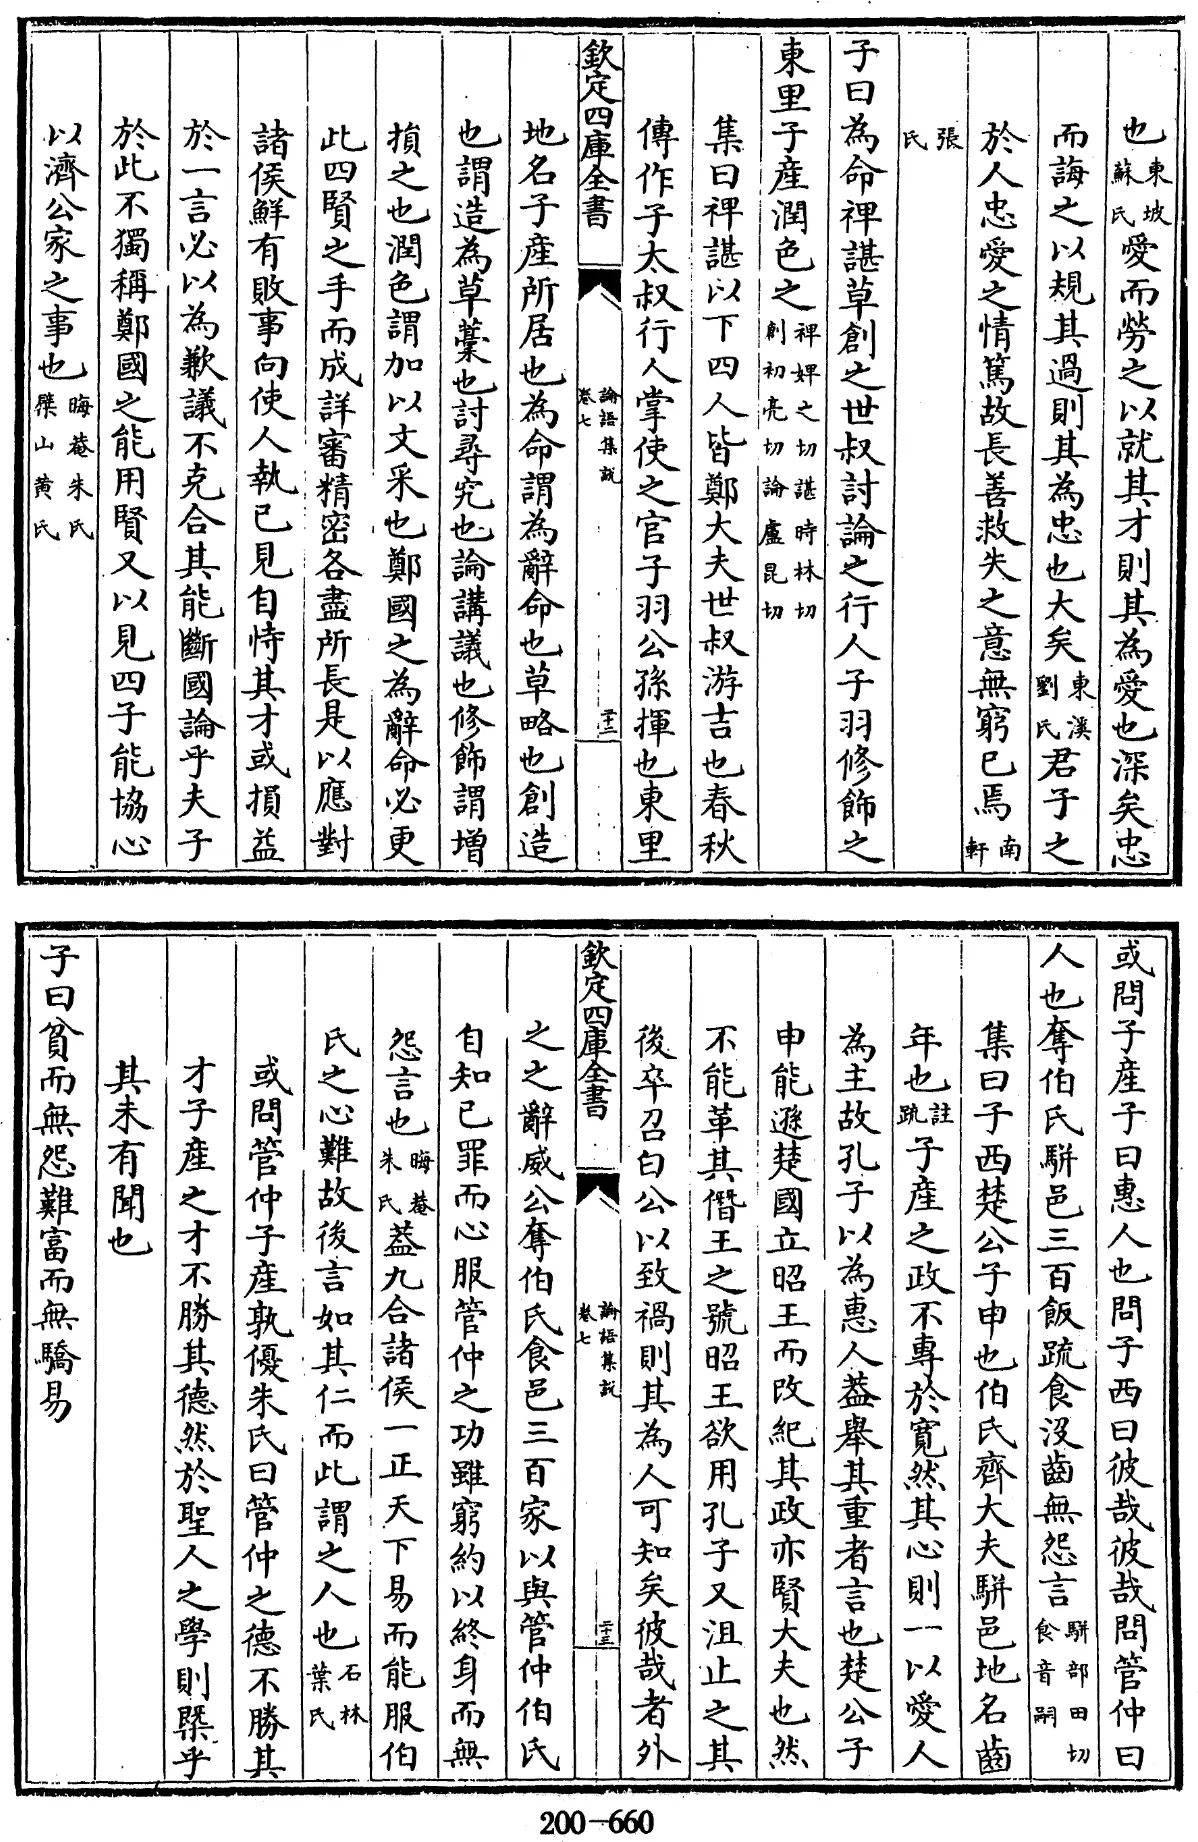 也東坡蘇氏愛而勞之以就其才則其為愛也深矣忠
而誨之以規其過則其為忠也大矣東溪劉氏君子之
於人忠愛之情篤故長善救失之意無窮已焉南軒
張氏
子曰為命裨諶草創之世叔討論之行人子羽修飾之
東里子產潤色之裨婢之切諶時林切創初亮切論盧昆切
集曰裨諶以下四人皆鄭大夫世叔游吉也春秋
傳作子太叔行人掌使之官子羽公孫揮也東里
欽定四庫全書
論語集說
卷七
二十二
地名子產所居也為命謂為辭命也草略也創造
也謂造為草藳也討尋究也論講議也修飾謂增
損之也潤色謂加以文采也鄭國之為辭命必更
此四賢之手而成詳審精密各盡所長是以應對
諸侯鮮有敗事向使人執已見自恃其才或損益
於一言必以為歉議不克合其能斷國論乎夫子
於此不獨稱鄭國之能用賢又以見四子能協心
以濟公家之事也晦菴朱氏㮣山黄氏
或問子產子曰惠人也問子西曰彼哉彼哉問管仲曰
人也奪伯氏駢邑三百飯疏食沒齒無怨言駢部田切食音嗣
集曰子西楚公子申也伯氏齊大夫駢邑地名齒
年也註疏子產之政不專於寛然其心則一以愛人
為主故孔子以為惠人葢舉其重者言也楚公子
申能遜楚國立昭王而改紀其政亦賢大夫也然
不能革其僭王之號昭王欲用孔子又沮止之其
後卒召白公以致禍則其為人可知矣彼哉者外
欽定四庫全書
論語集說
卷七
二十三
之之辭威公奪伯氏食邑三百家以與管仲伯氏
自知已罪而心服管仲之功雖窮約以終身而無
怨言也晦菴朱氏葢九合諸侯一正天下易而能服伯
氏之心難故後言如其仁而此謂之人也石林葉氏
或問管仲子產孰優朱氏曰管仲之德不勝其
才子產之才不勝其德然於聖人之學則槩乎
其未有聞也
子曰貧而無怨難富而無驕易
200-660